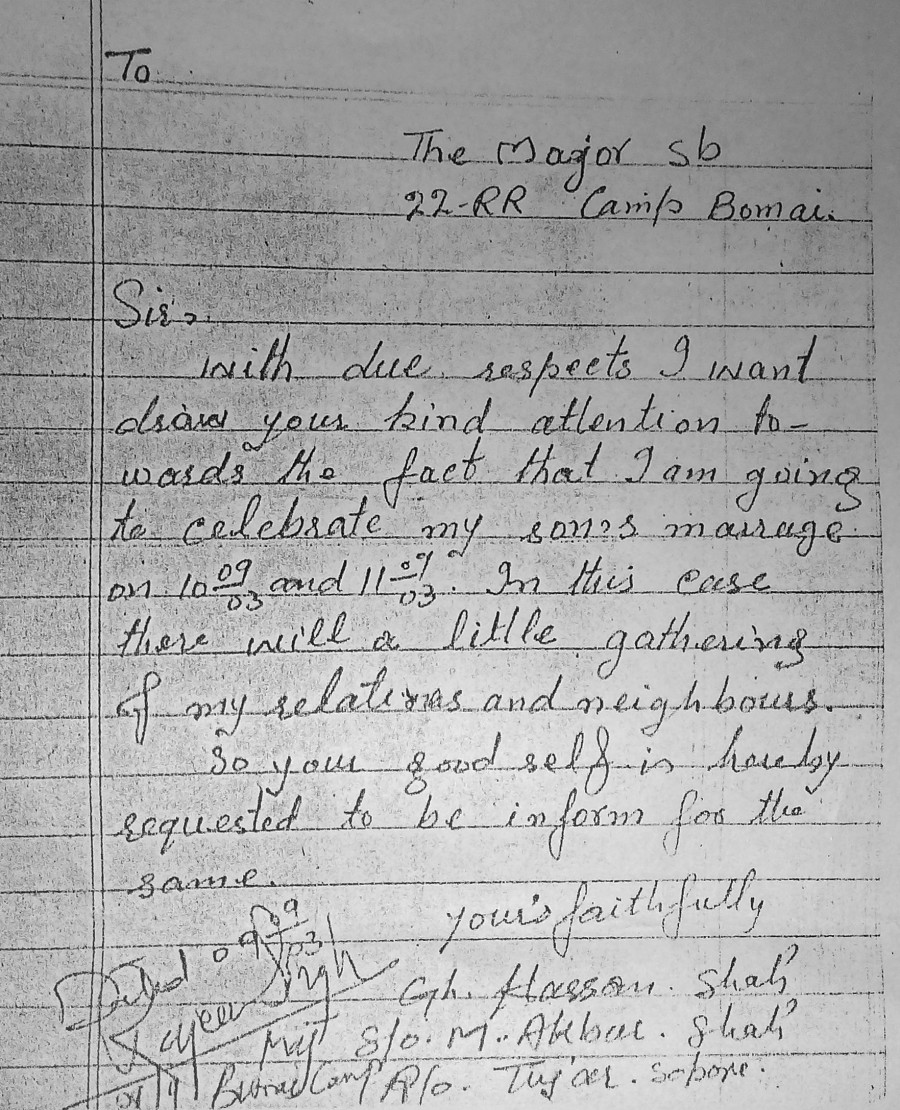 To
The Major Sb
22-RR Camp Bomai.
Sir,
with due respects I want
draw your kind attention to-
wards the fact that I am going
to celebrate my son's marrage
on 10 09/03 and 11 09/03. In this case
there will a little gathering
of my relatives and neighbours.
So your good self is hereby
requested to be inform for the
same.
your's faithfully
Dated 09 09/03
Gh. Hassan. Shah
Singh
Maj S/o. M. Akbar. Shah
Camp R/o. Tujar. Sopore.